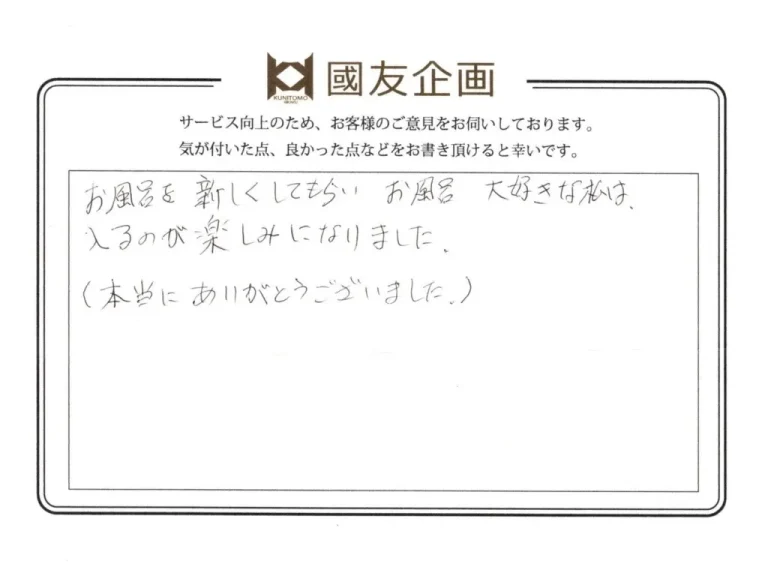 國友企画
KUNITOMO
サービス向上のため、お客様のご意見をお伺いしております。
気が付いた点、良かった点などをお書き頂けると幸いです。
お風呂を 新しくしてもらい お風呂 大好きな私は、
入るのが楽しみになりました。
(本当に ありがとうございました。)